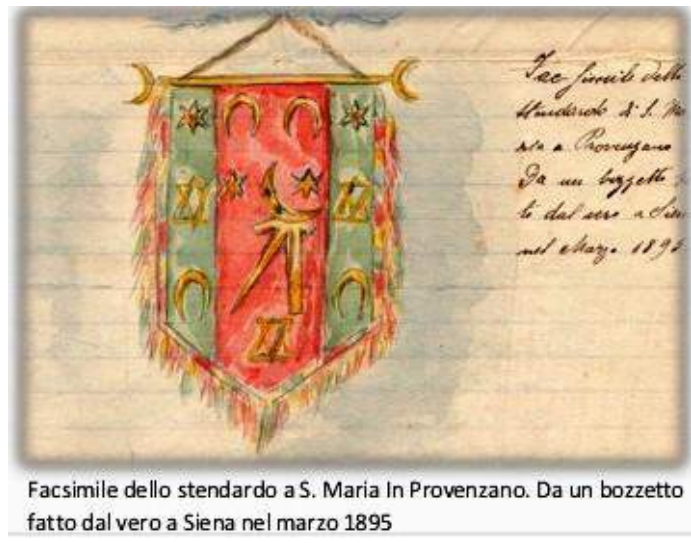 Fac simile dello
stendardo di S. Ma
ria a Provenzano
Da un bozzetto
to dal vero a Sien
nel Marzo 1895
Facsimile dello stendardo a S. Maria In Provenzano. Da un bozzetto
fatto dal vero a Siena nel marzo 1895